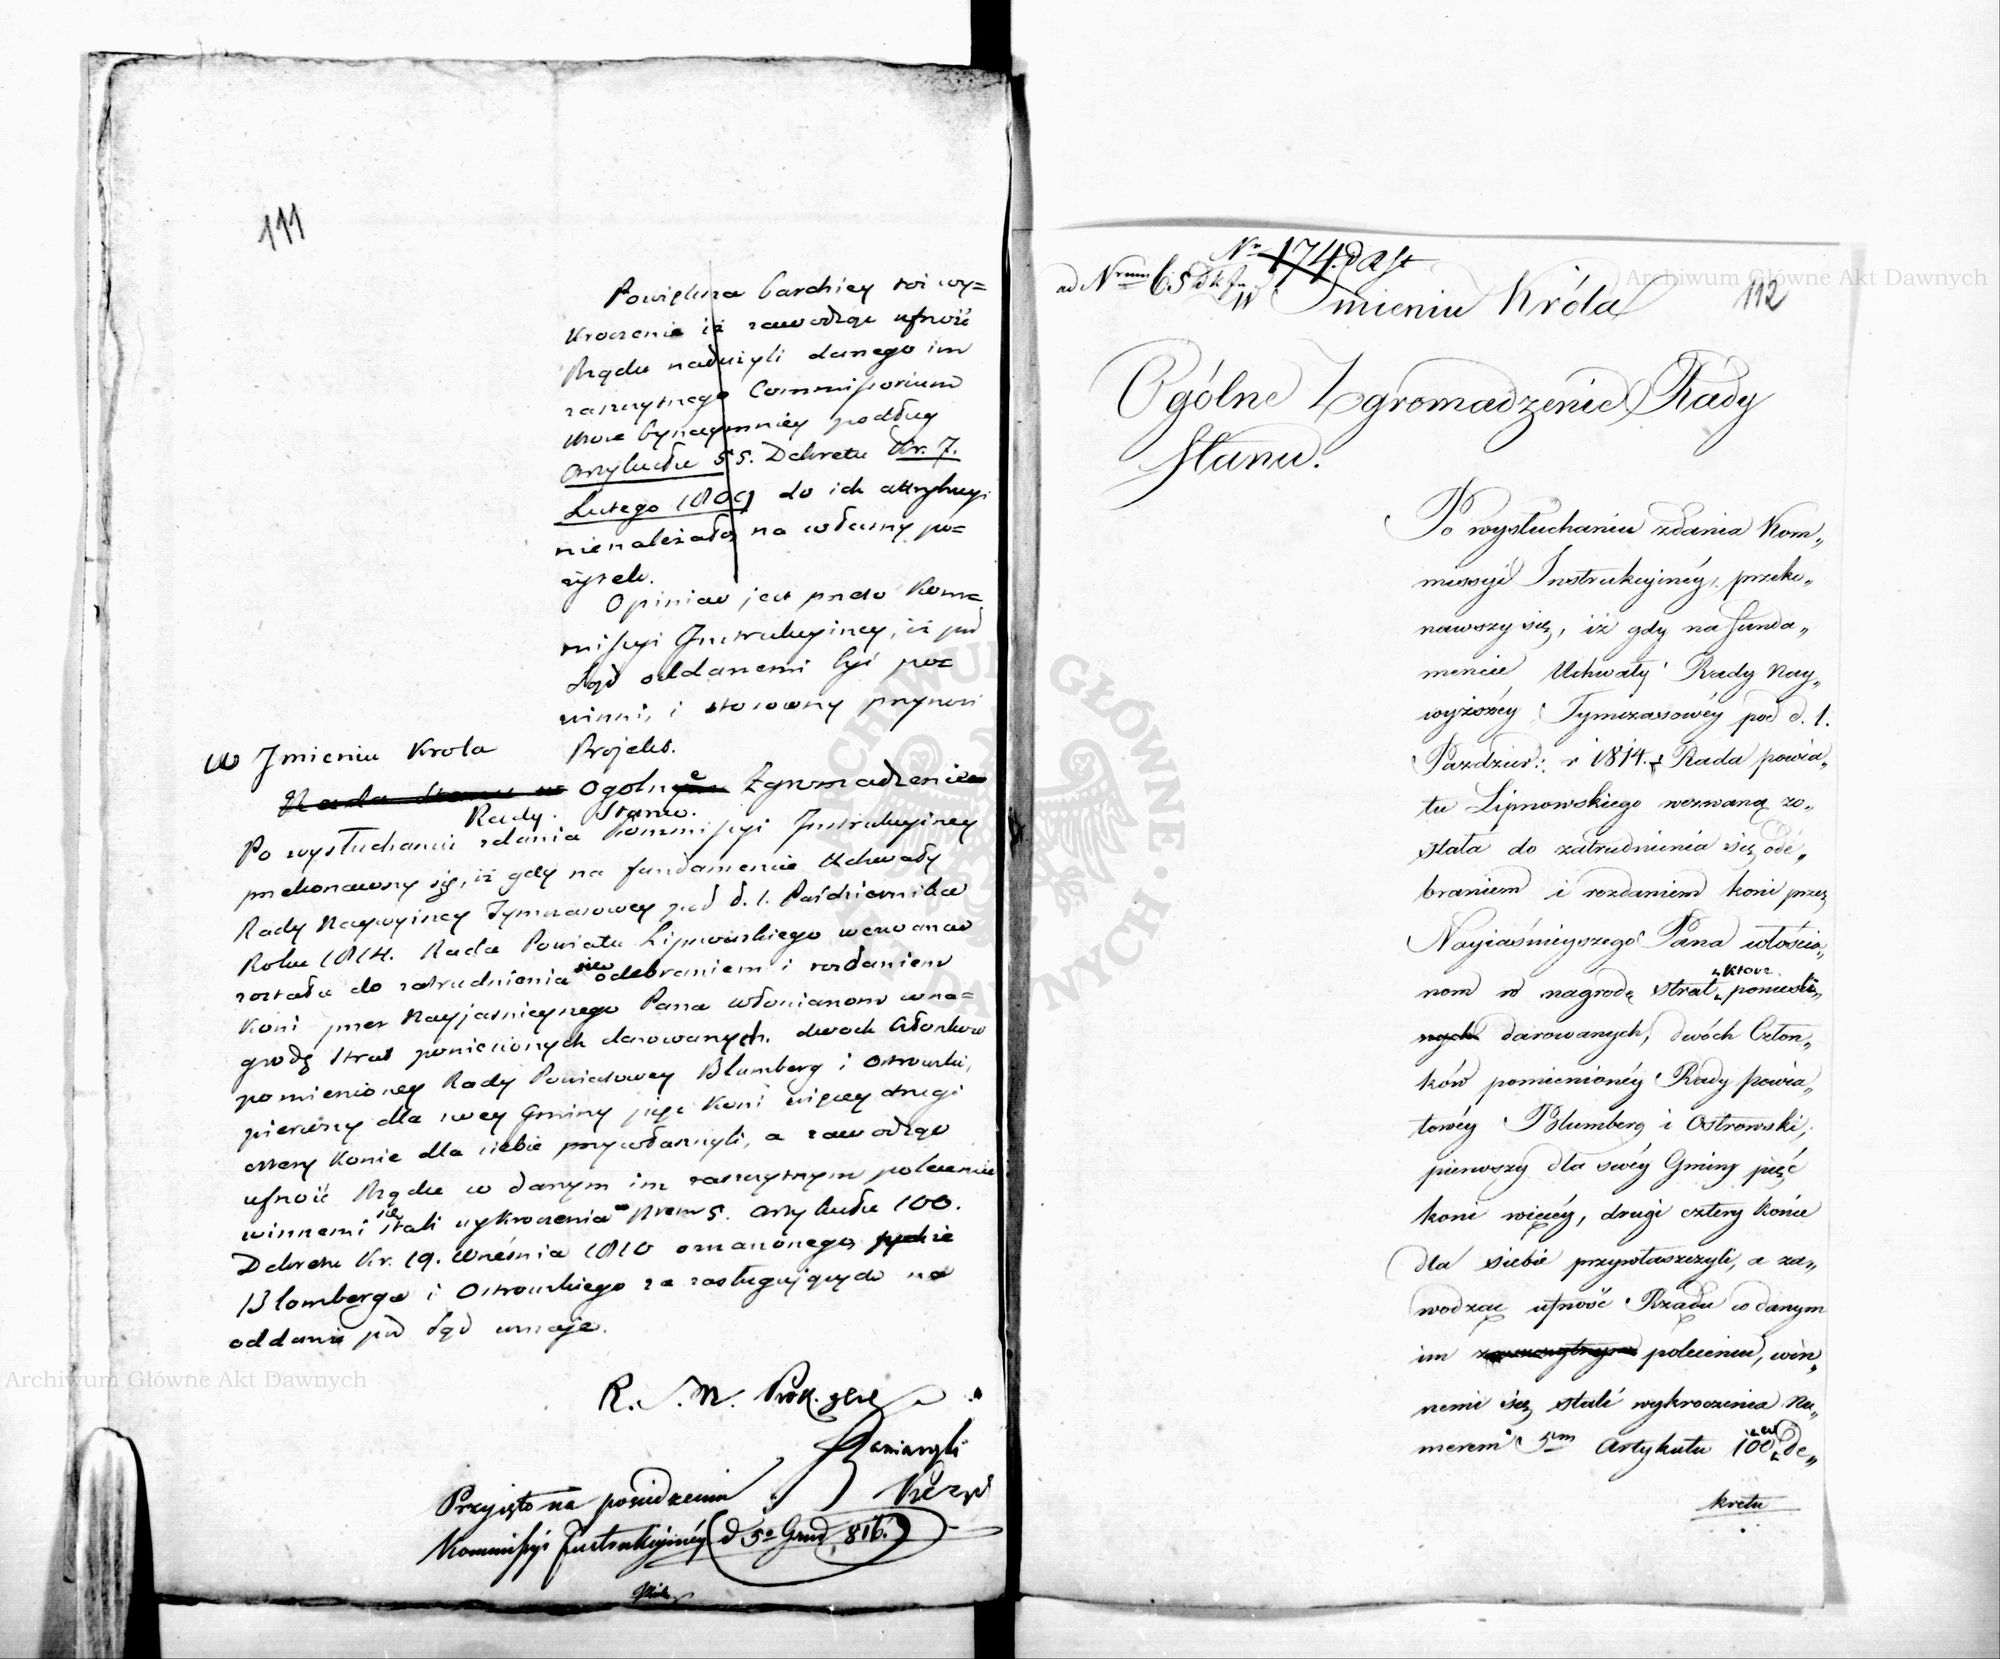 111
Powiększa bardziey toż wy=
kroczenie iż zawodząc ufność
Rządu nadużyli danego im
zaszczytnego Commissorium
które bynaymniey podług
Artykułu 55. Dekretu Kr. 7.
Lutego 1809 do ich attrybucyi
nienależało, na własny po=
żytek.
Opinią jest przeto Kom=
missyi Instrukcyiney, iż pod
Sąd oddanemi być po=
winni, i stosowny przynosi
Projekt.
W Jmieniu Krola
Rada Stanu w Ogolne Zgromadzenie
Rady Stanu.
Po wysłuchaniu zdania Kommissyi Instrukcyiney
przekonawszy się, iż gdy na fundamencie Uchwały
Rady Naywyższey Tymczasowey pod d. 1. Października
Roku 1814. Rada Powiatu Lipnowskiego wezwana
została do zatrudnienia się odebraniem i rozdaniem
Koni przez Nayjasnieyszego Pana włościanom w na=
grodę strat poniesionych darowanych. dwoch Członkow
pomienioney Rady Powiatowey Blumberg i Ostrowski,
pierwszy dla swey Gminy pięć Koni więcey drugi
cztery Konie dla siebie przywłaszczyli, a zawodząc
ufność Rządu w danym im zaszczytnym poleceniu
winnemi się stali wykroczenia Nrem 5. Artykułu 100.
Dekretu Kr. 19. Września 1810 oznaczonego,
Blomberga i Ostrowskiego za zasługujących na
oddanie pod Sąd uznaje.
R. S. N. Prok.
Przyięto na posiedzeniu
Kommissyi Instrukcyiney d 5o Grud. 816.
No 174. d a St
ad Nrum 65
112
W Jmieniu Króla
Ogólne Zgromadzenie Rady
Stanu.
Po wysłuchaniu zdania Kom„
missyi Instrukcyinéy, przeko„
nawszy się, iż gdy na funda„
mencie Uchwały Rady Nay„
wyższéy Tymczasowéy pod d. 1.
Pazdzier: r 1814. Rada powia„
tu Lipnowskiego wezwaną zo„
stała do zatrudnienia się ode„
braniem i rozdaniem koni przez
Nayiaśnieyszego Pana włościa„
nom w nagrodę strat, poniesli„
które
nych darowanych, dwóch Człon„
ków pomienionéy Rady powia„
towéy Blumberg i Ostrowski,
pierwszy dla swéy Gminy pięć
koni więcéy, drugi cztery konie
dla siebie przywłaszczyli, a za„
wodząc ufność Rządu w danym
im zaszczytnym poleceniu, win„
nemi się stali wykroczenia Nu„
merem 5m Artykułu 100 De„
kretu
Archiwum Główne Akt Dawnych
Archiwum Główne Akt Dawnych
ARCHIWUM GŁÓWNE AKT DAWNYCH